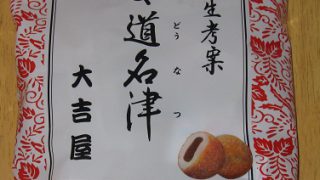 生考案
道名津
どうなつ
大吉屋